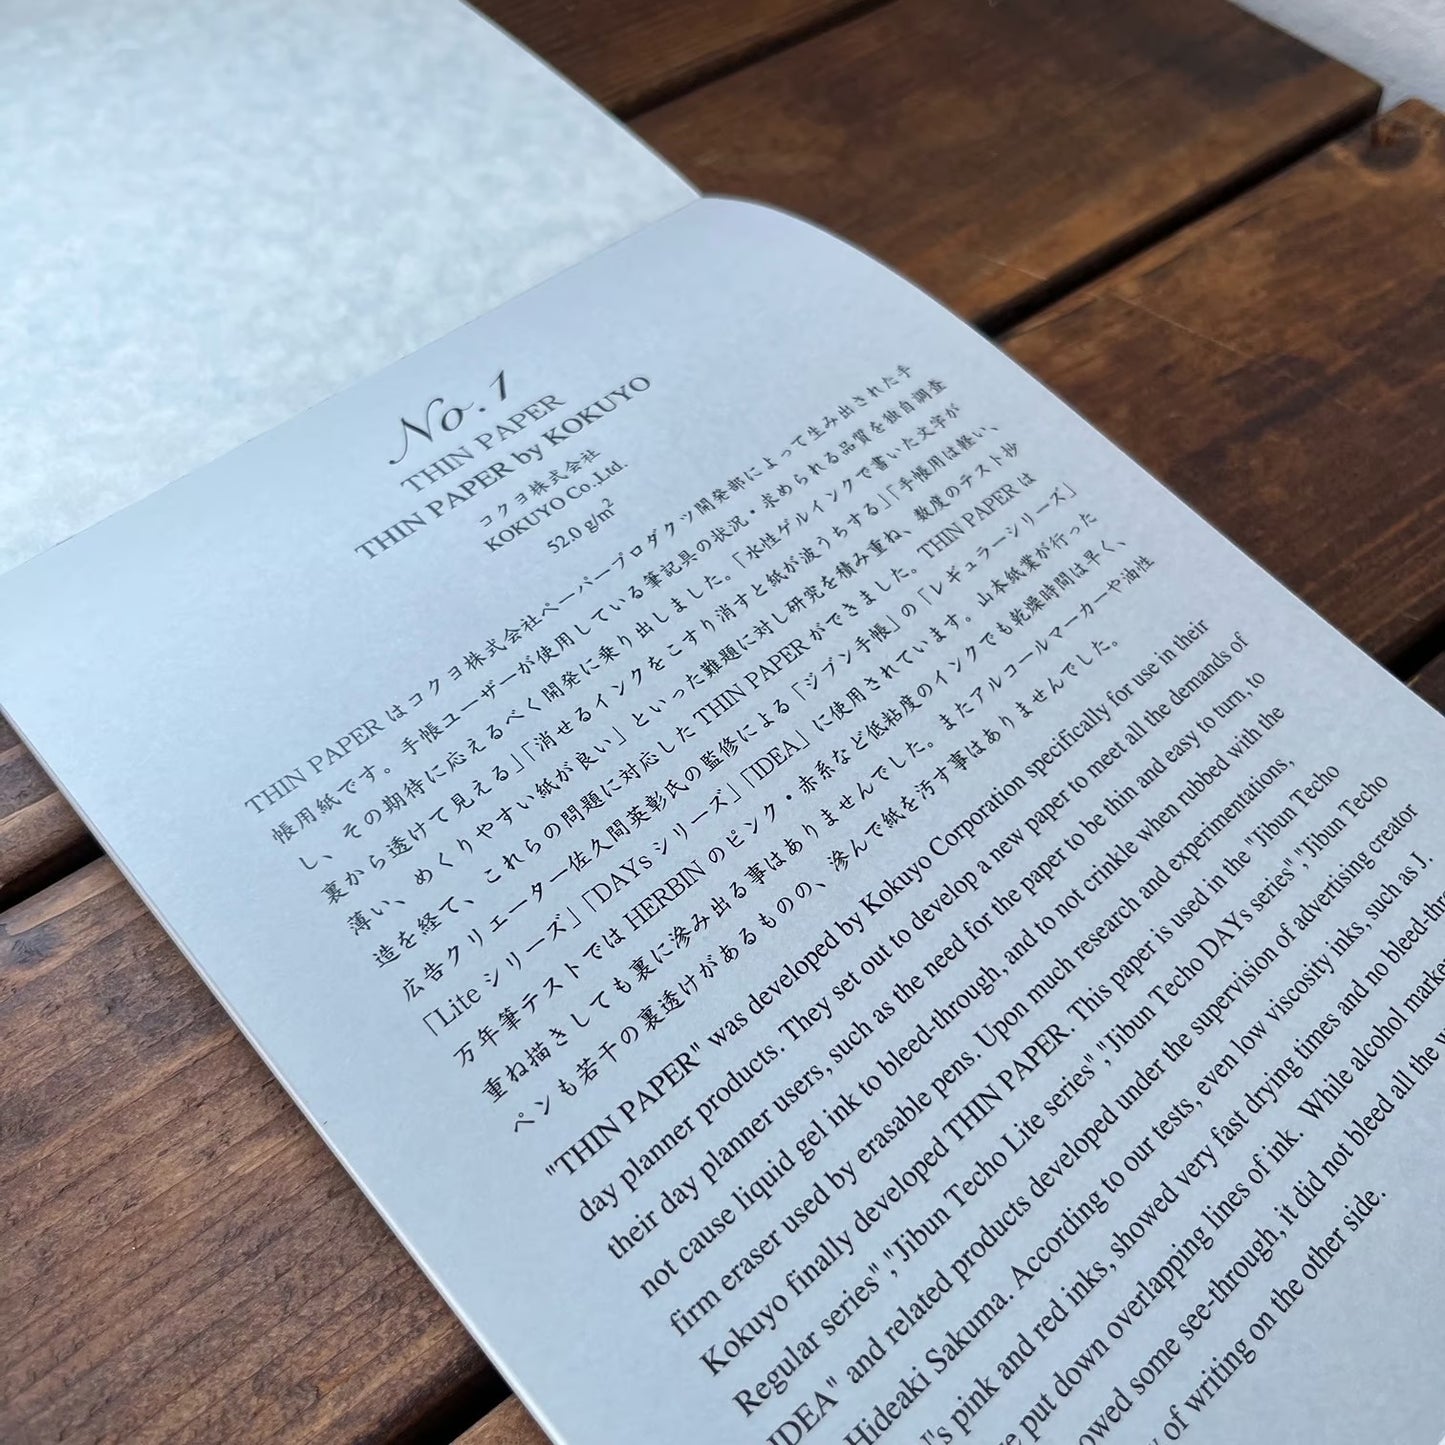 No.1
THIN PAPER
THIN PAPER by KOKUYO
コクヨ株式会社
KOKUYO Co.,Ltd.
52.0 g/m²
THIN PAPER はコクヨ株式会社ペーパープロダクツ開発部によって生み出された手
帳用紙です。手帳ユーザーが使用している筆記具の状況・求められる品質を独自調査
し、その期待に応えるべく開発に乗り出しました。「水性ゲルインクで書いた文字が
裏から透けて見える」「消せるインクをこすり消すと紙が波うちする」「手帳用は軽い、
薄い、めくりやすい紙が良い」といった難題に対し研究を積み重ね、数度のテスト抄
造を経て、これらの問題に対応した THIN PAPER ができました。THIN PAPER は
広告クリエーター佐久間英彰氏の監修による「ジブン手帳」の「レギュラーシリーズ」
「Lite シリーズ」「DAYs シリーズ」「IDEA」に使用されています。山本紙業が行った
万年筆テストでは HERBIN のピンク・赤系など低粘度のインクでも乾燥時間は早く、
重ね描きしても裏に滲み出る事はありませんでした。またアルコールマーカーや油性
ペンも若干の裏透けがあるものの、滲んで紙を汚す事はありませんでした。
"THIN PAPER" was developed by Kokuyo Corporation specifically for use in their
day planner products. They set out to develop a new paper to meet all the demands of
their day planner users, such as the need for the paper to be thin and easy to turn, to
not cause liquid gel ink to bleed-through, and to not crinkle when rubbed with the
firm eraser used by erasable pens. Upon much research and experimentations,
Kokuyo finally developed THIN PAPER. This paper is used in the "Jibun Techo
Regular series","Jibun Techo Lite series","Jibun Techo DAYs series","Jibun Techo
IDEA" and related products developed under the supervision of advertising creator
Hideaki Sakuma. According to our tests, even low viscosity inks, such as J.
pink and red inks, showed very fast drying times and no
put down overlapping lines of ink. While alcohol
some see-through, it did not bleed all the
of writing on the other side.